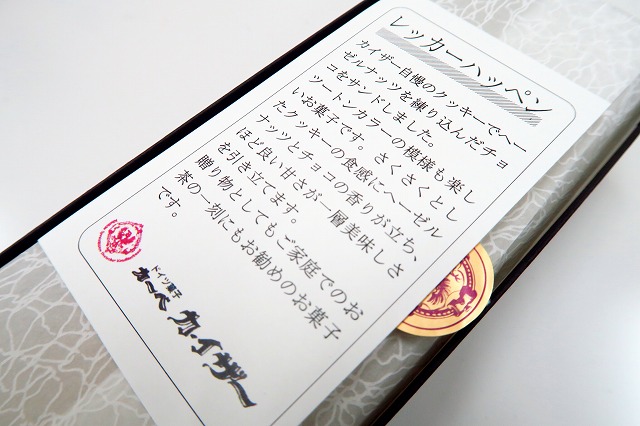 レッカーハッペン
カイザー自慢のクッキーでヘー
ゼルナッツを練り込んだチョ
コをサンドしました。
ツートンカラーの模様も楽し
いお菓子です。さくさくとし
たクッキーの食感にヘーゼル
ナッツとチョコの香りが立ち、
ほど良い甘さが一層美味しさ
を引き立てます。
贈り物としてもご家庭でのお
茶の一刻にもお勧めのお菓子
です。
ドイツ菓子
カーベ カイザー